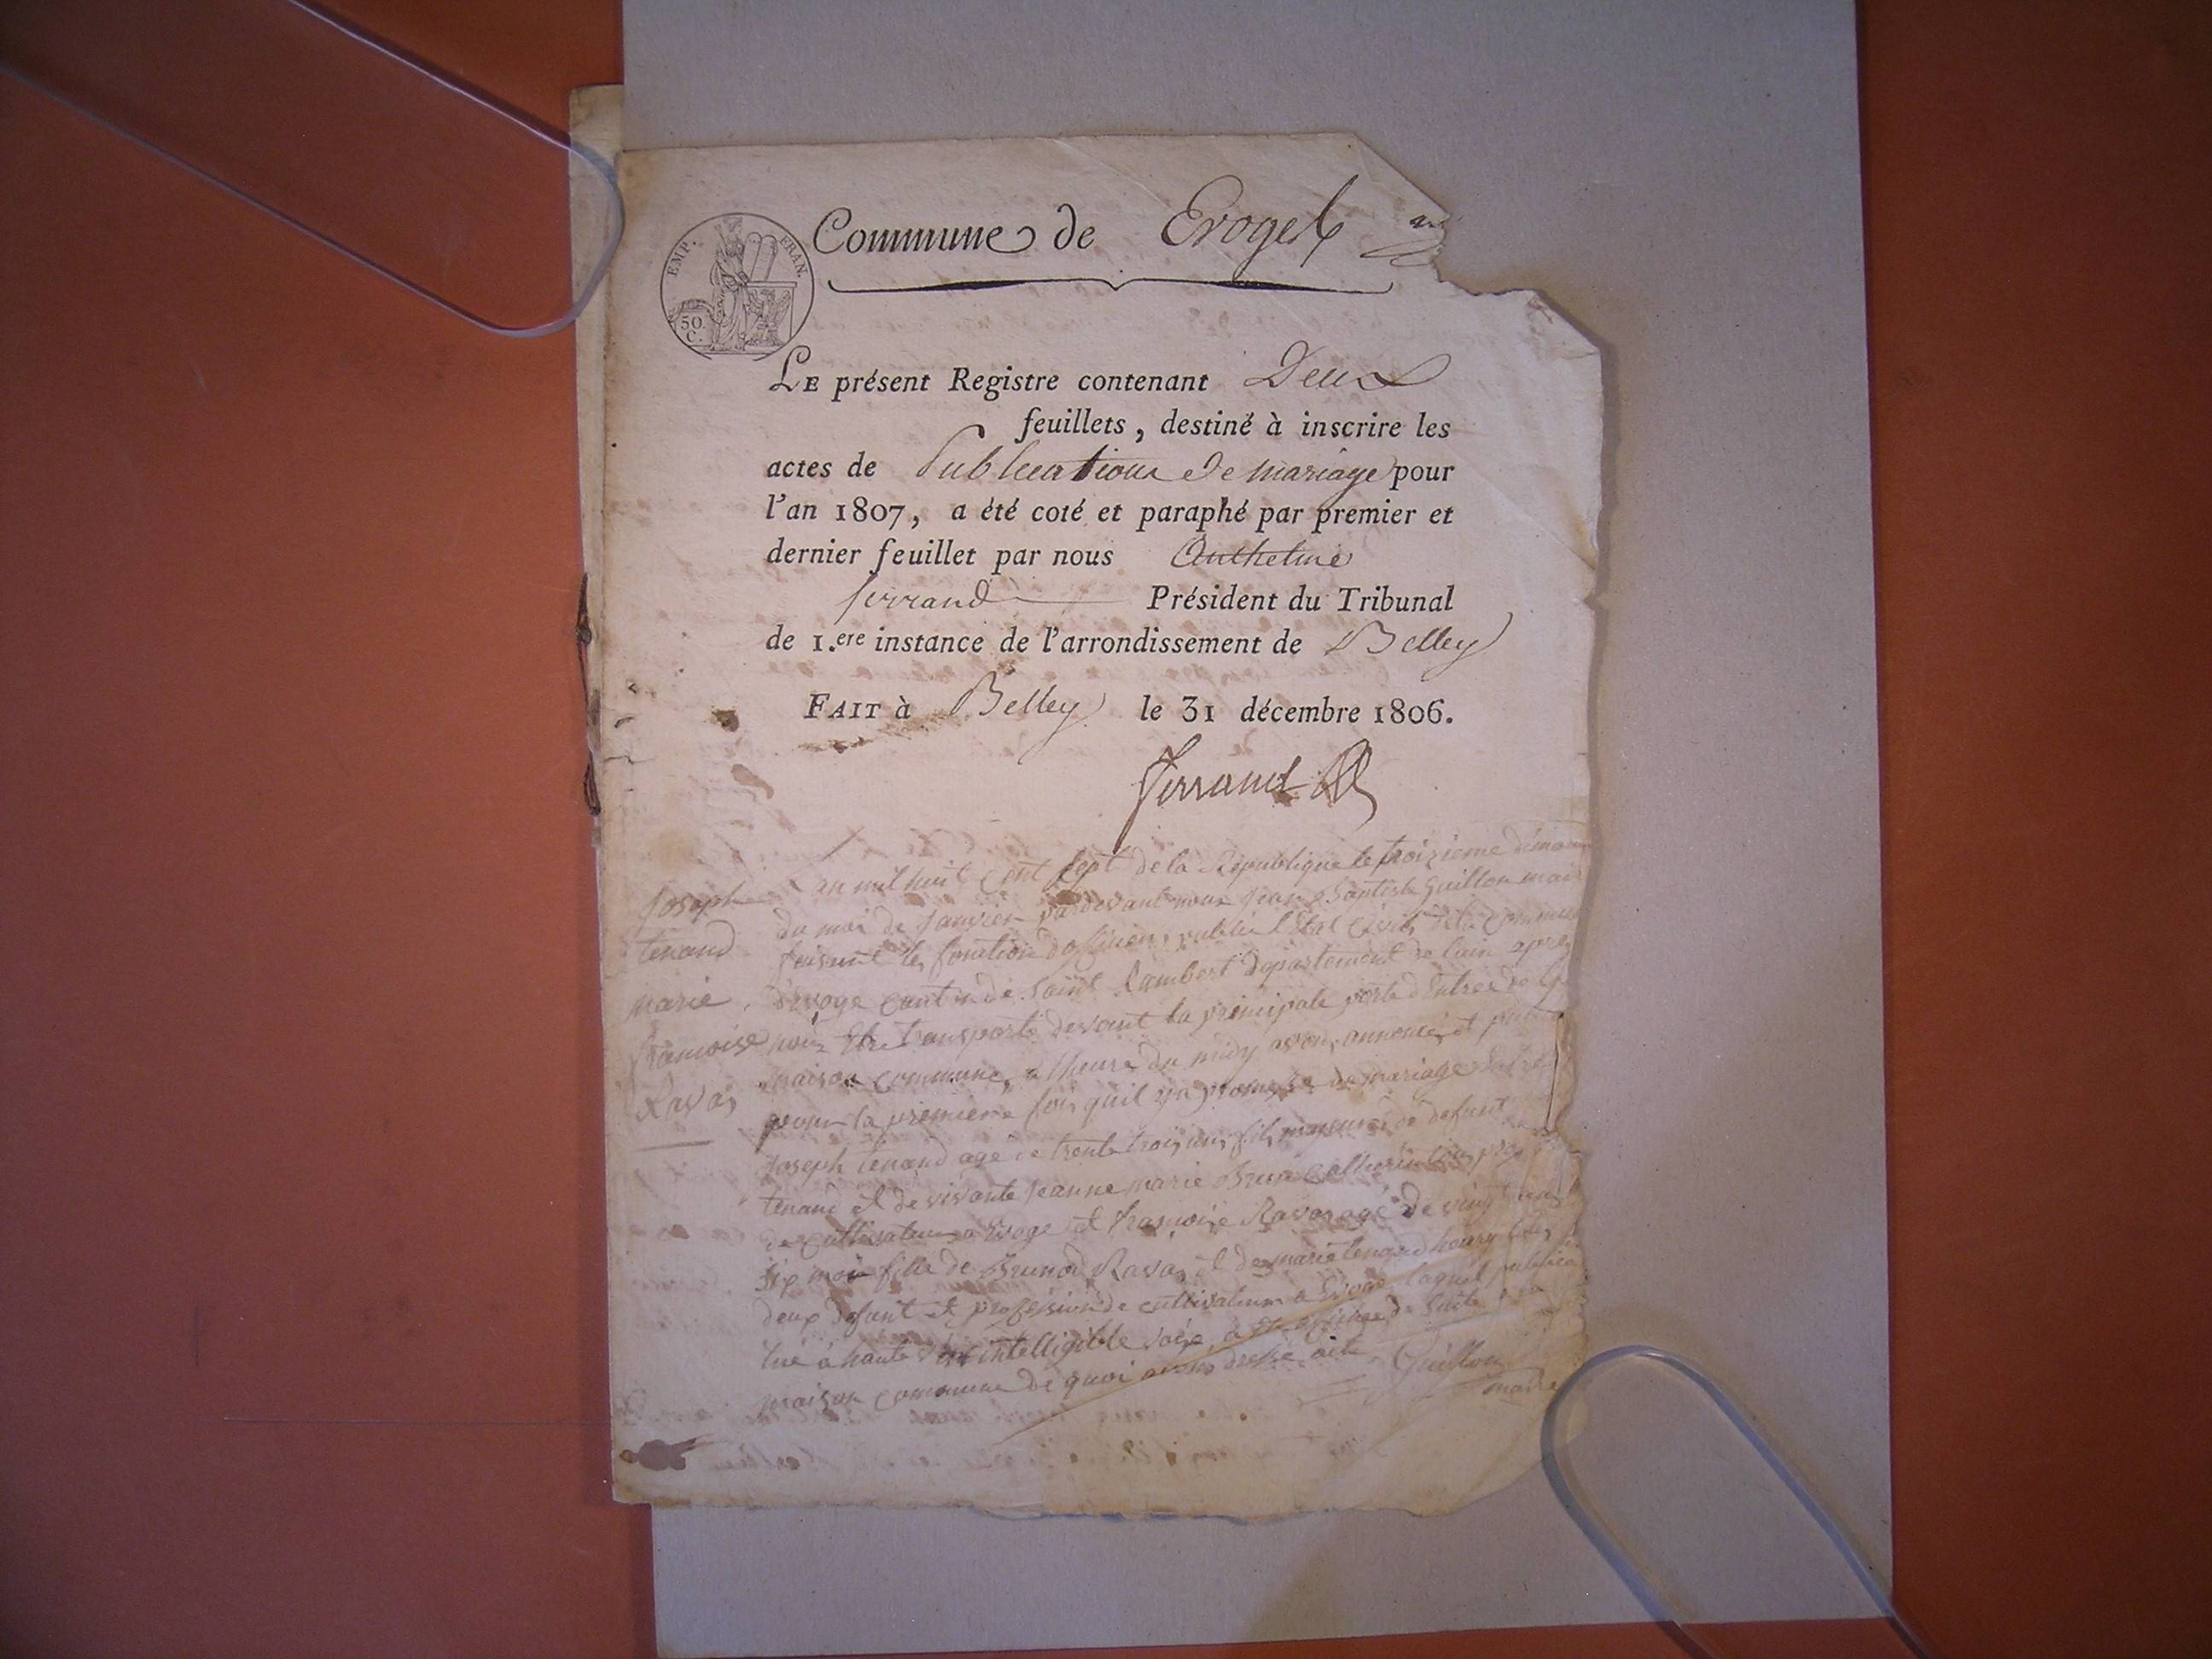 Commune de Evoges
EMP. FRAN.
50.
C.
LE présent Registre contenant Deux
feuillets, destiné à inscrire les
actes de Publications de mariage pour
l'an 1807, a été coté et paraphé par premier et
dernier feuillet par nous Anthelme
ferrand Président du Tribunal
de 1.ere instance de l'arrondissement de Belley
FAIT à Belley le 31 décembre 1806.
ferrand
Joseph
tenand
marie
francoise
Ravas
an mil huit cent sept de la Republique le troizieme
du moi de Janvier pardevant nous Jean Baptiste Guillon
faisant les fonction publier l'Etat Civil de la
d'evoge canton de Saint Rambert departement de lain apres
nous Etre transporté devant la principale porte d'Entree de
maison commune, a lheure du midy avons annoncé et
pour la premiere fois quil y a promesse de mariage Entre
Joseph tenand agé de trente trois ans fils de defunt
tenand et de vivante Jeanne marie
de cultivateur a Evoge et francoise Ravas agé de vingt
six moi fille de Ravas et de marie tenand
deux defunt et profession de cultivateur a Evoge laquel
à haute et intelligible voix a été affichee de suite
maison commune de quoi avons dressé acte Guillon
maire